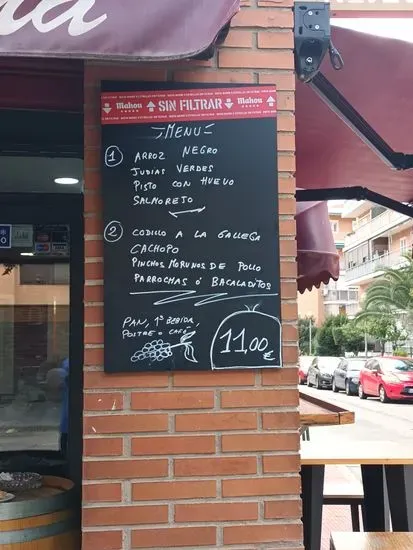 da
Mahou
Mahou SIN FILTRAR Mahou
MENU
1 ARROZ NEGRO
JUDIAS VERDES
PISTO CON HUEVO
SALMOREJO
2 CODILLO A LA GALLEGA
CACHOPO
PINCHOS MORUNOS DE POLLO
PARROCHAS Ó BACALADITOS
PAN, 1ª BEBIDA,
POSTRE O CAFÉ
11,00 €